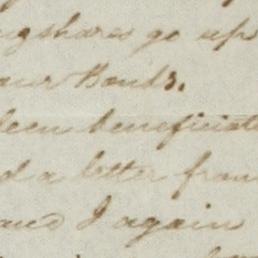 shares go up
our Bonds.
been beneficiate
d a letter from
and I again